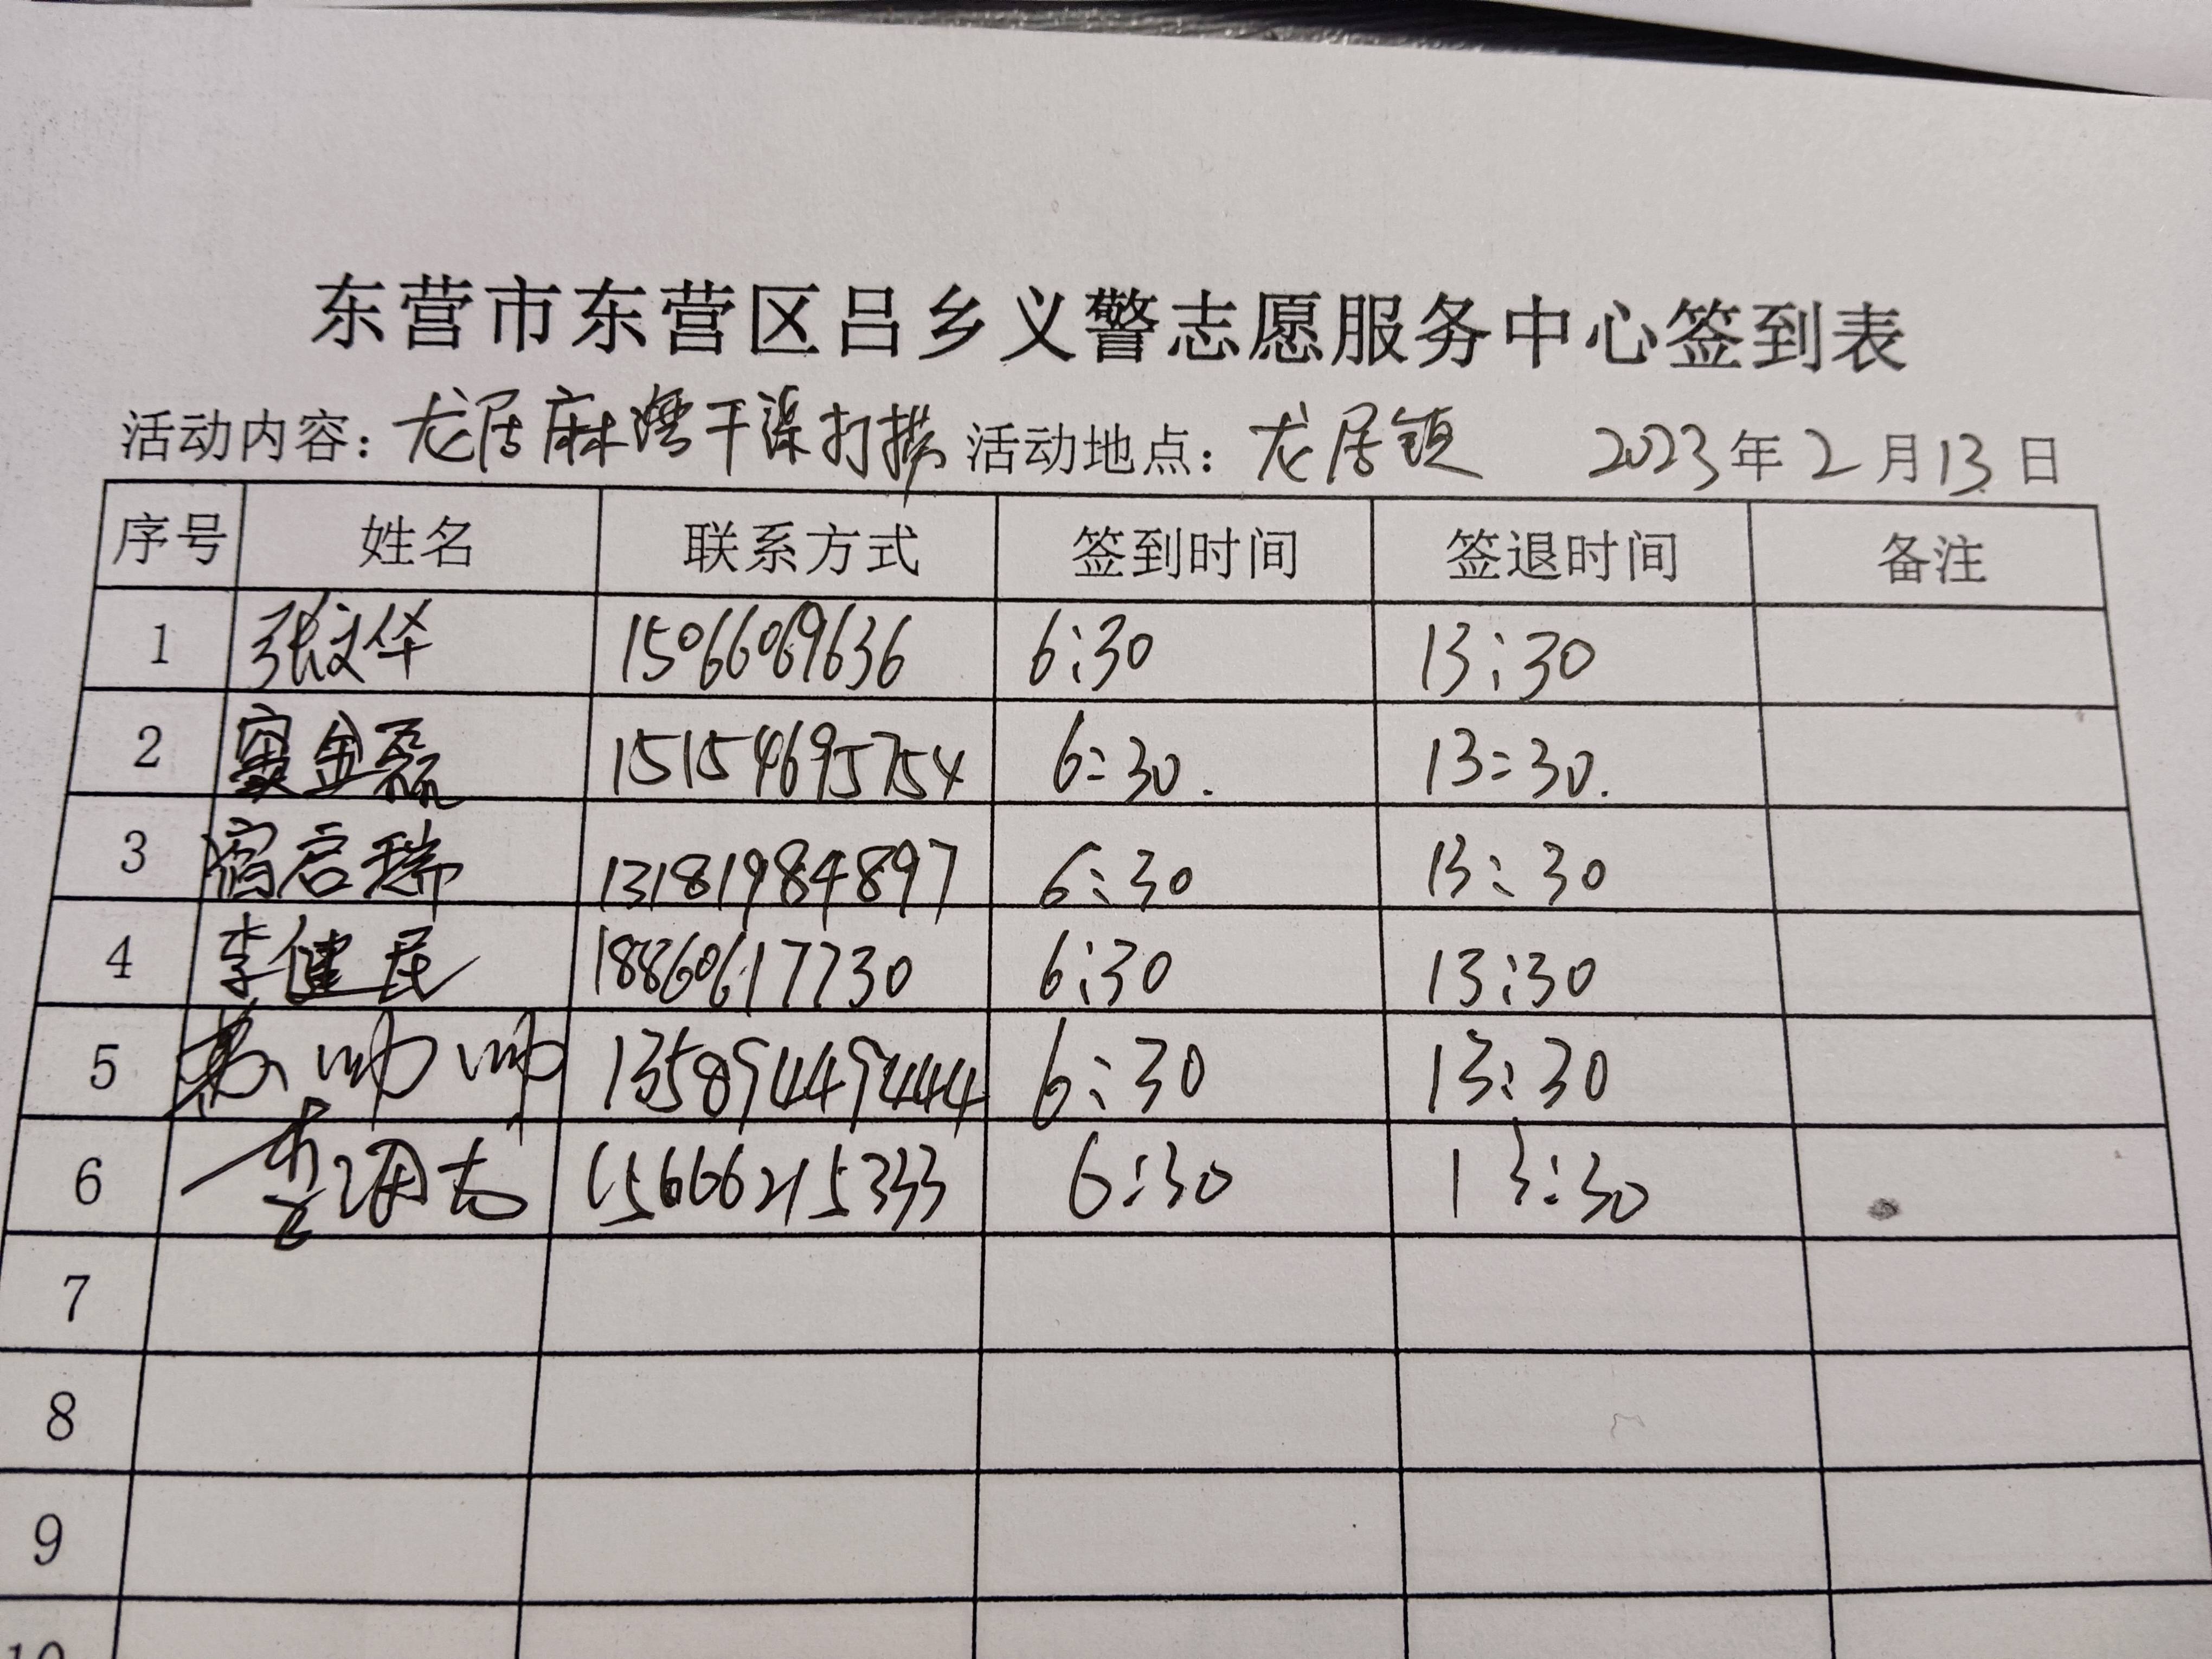 东营市东营区吕乡义警志愿服务中心签到表
活动内容：龙居麻湾干渠打捞 活动地点：龙居镇 2023年2月13日
序号 姓名 联系方式 签到时间 签退时间 备注
1 张文华 15066069636 6:30 13:30
2 窦金磊 15154695754 6:30. 13:30.
3 启瑞 13181984897 6:30 13:30
4 李健民 18860617730 6:30 13:30
5 帅帅 13589449444 6:30 13:30
6 李 15666215333 6:30 13:30
7
8
9
10